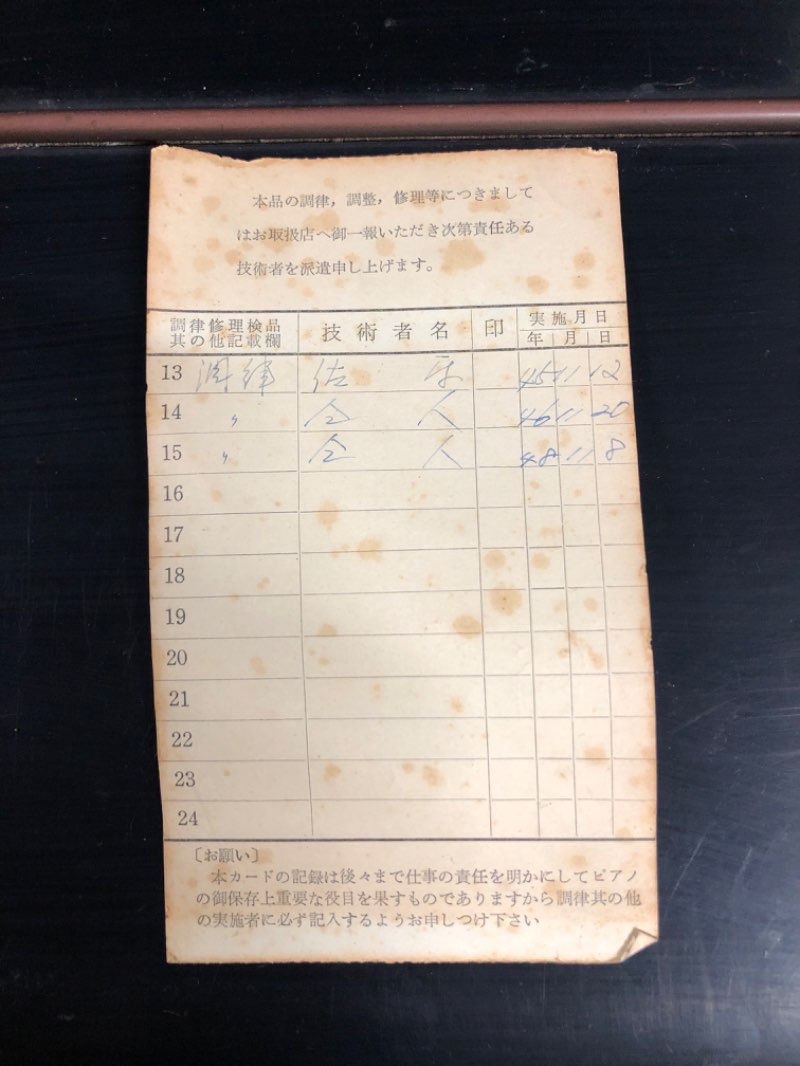 本品の調律，調整，修理等につきまして
はお取扱店へ御一報いただき次第責任ある
技術者を派遣申し上げます。
調律修理検品
其の他記載欄
技術者名
印
実施月日
年 月 日
13 調律 佐 45 11 12
14 〃 仝 人 46 11 20
15 〃 仝 人 48 11 8
16
17
18
19
20
21
22
23
24
〔お願い〕
本カードの記録は後々まで仕事の責任を明かにしてピアノ
の御保存上重要な役目を果すものでありますから調律其の他
の実施者に必ず記入するようお申しつけ下さい